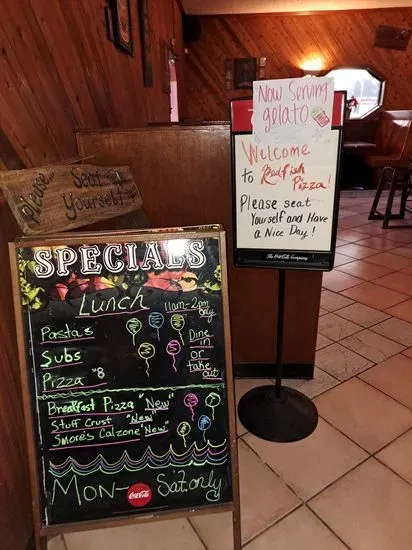 Now Serving
gelato
Welcome
to Redfish
Pizza!
Please seat
Yourself and Have
a Nice Day!
The Coca-Cola Company
Please...
Seat
Yourself
SPECIALS
Lunch 11am-2pm
Pasta's
Subs
Pizza "8
Dine
in
or
take
out
Breakfast Pizza "New"
Stuff Crust "New"
Smore's Calzone "New"
Mon- Coca-Cola Sat. only